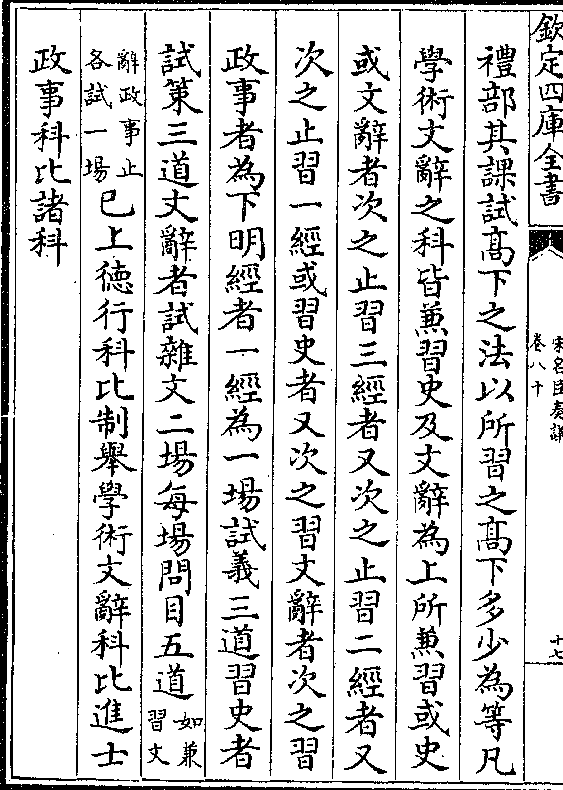 欽定四庫全書
宋名臣奏議
卷八十
十七
禮部其課試髙下之法以所習之髙下多少為等凡
學術文辭之科皆兼習史及文辭為上所兼習或史
或文辭者次之止習三經者又次之止習二經者又
次之止習一經或習史者又次之習文辭者次之習
政事者為下明經者一經為一場試義三道習史者
試策三道文辭者試雜文二場每場問目五道如兼
習文
辭政事止
各試一場已上德行科比制舉學術文辭科比進士
政事科比諸科